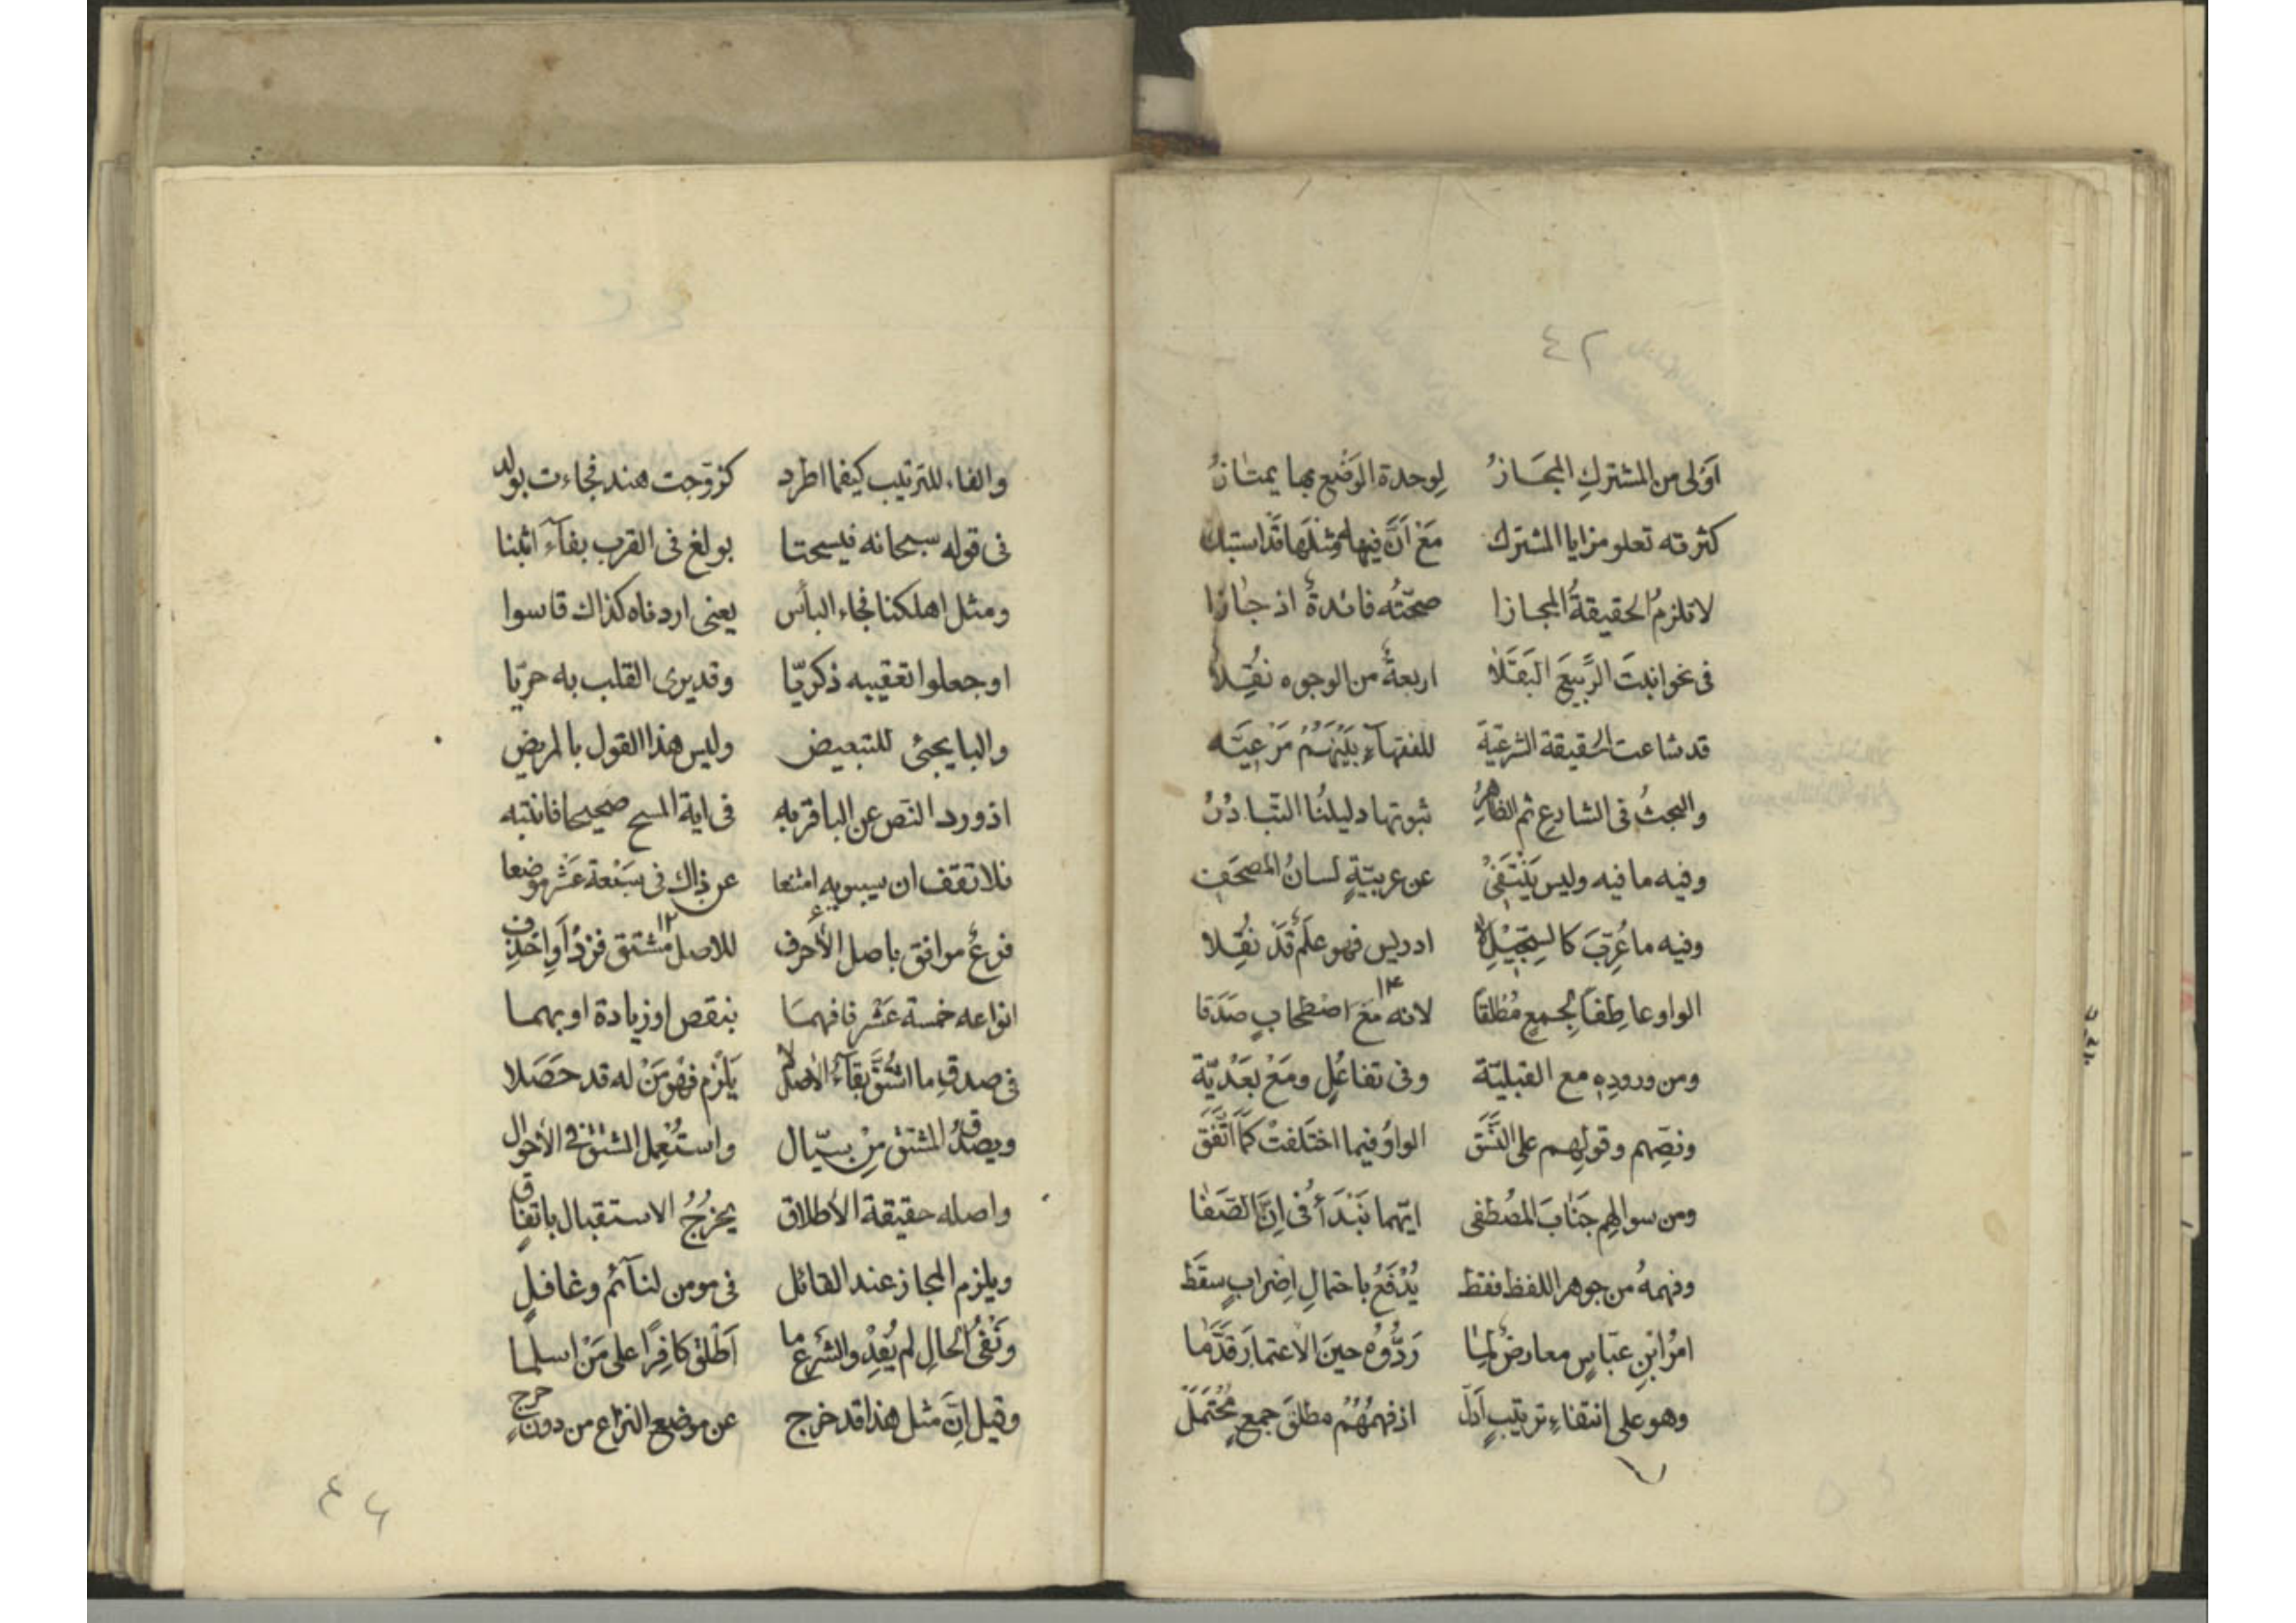 ٤٢
اَوْلى من المشتركِ المجَازُ لِوحدة الوَضْع بها يمتازُ
كثرته تعلو مزايا المشترك مَعْ اَنَّ فيها مِثلَها قد استبك
لا تلزمُ الحقيقةُ المجازا صحّتُه فائدةٌ اذ جازا
فى نحو انبتَ الرَّبيعَ البَقَلَا اربعةٌ من الوجوه نُقِلا
قد شاعت الحقيقة الشرعيّة للفقهآءِ بَيْنَهُمْ مَرْعِيَّه
والبحثُ فى الشارعِ ثم الظاهرُ ثبوتها دليلُنا التّبادُرُ
وفيه ما فيه وليس يَنْتَفِىْ عن عربيّةٍ لسانُ المصحَفِ
وفيه ما عُرِّبَ كالسِجّيْلِ لا ادريس فهو علَم قَدْ نُقِلا
الواو عاطِفًا لِجمعٍ مُطْلَقًا لانه مَعَ اصْطحابٍ صَدَقا
ومن ورودِهٖ مع القبليّة وفى تفاعُلٍ ومَعْ بَعْدِيّة
ونصّهم وقولِهم على النَّسَق الواوُ فيما اختَلفَتْ كمَا اتَّفَقَ
ومن سوالهِم جَنَابَ المُصْطفى ايّهما نَبْدَأُ فى اِنَّ الصَّفَا
وفهمهُ من جوهر اللفظ فقط يُدْفَعُ باحتمالِ اِضرابٍ سقَط
امرُ ابْنِ عبّاسٍ معارضٌ لمِا رَدُّوُه حينَ الاعتمارَ قَدَّمَا
وهو على انتفاءِ ترتيبٍ اَدَلّ اذ فهمُهُمْ مطلقَ جمعٍ مُحْتَمَلْ
والفاء للترتيب كيفما اطرد كزوّجت هند فجاءت بولد
فى قوله سبحانه فيسحتا بولغ فى القرب بفآء اثبتا
ومثل اهلكنا فجاء البأس يعنى اردناه كذاك قاسوا
او جعلوا تعقيبه ذكريّا وقد يرى القلب به حريّا
والبا يجئ للتبعيض وليس هذا القول بالمريض
اذ ورد النص عن الباقر به فى اية المسح صحيحا فانتبه
فلا تقف ان سيبويه امتنعا عن ذاك فى سَبْعة عَشَر موضعا
فرعٌ موافق باصل الأحرف للاصل مشتق فزدْ أَوِ احْذِف
انواعه خمسة عَشْر فافهمَا بنقص او زيادة او بهما
فى صدقِ ما اشْتُقَّ بقآءُ الاصل لا يَلْزم فهْو مَنْ له قد حَصَلا
ويصدُقُ المشتق مِنْ سيّال واستُعْمِل المشتق فى الأحوال
واصله حقيقة الأطلاق يخرُجُ الاستقبال باتفاق
ويلزم المجاز عند القائل فى مومن لنآئم وغافلٍ
ونَفْىُ الحالِ لم يُفِدْ والشرع ما اَطْلق كافِرًا على مَنْ اسلما
وقيل اِنّ مثل هذا قد خرج عن موضع النزاع من دون حرج